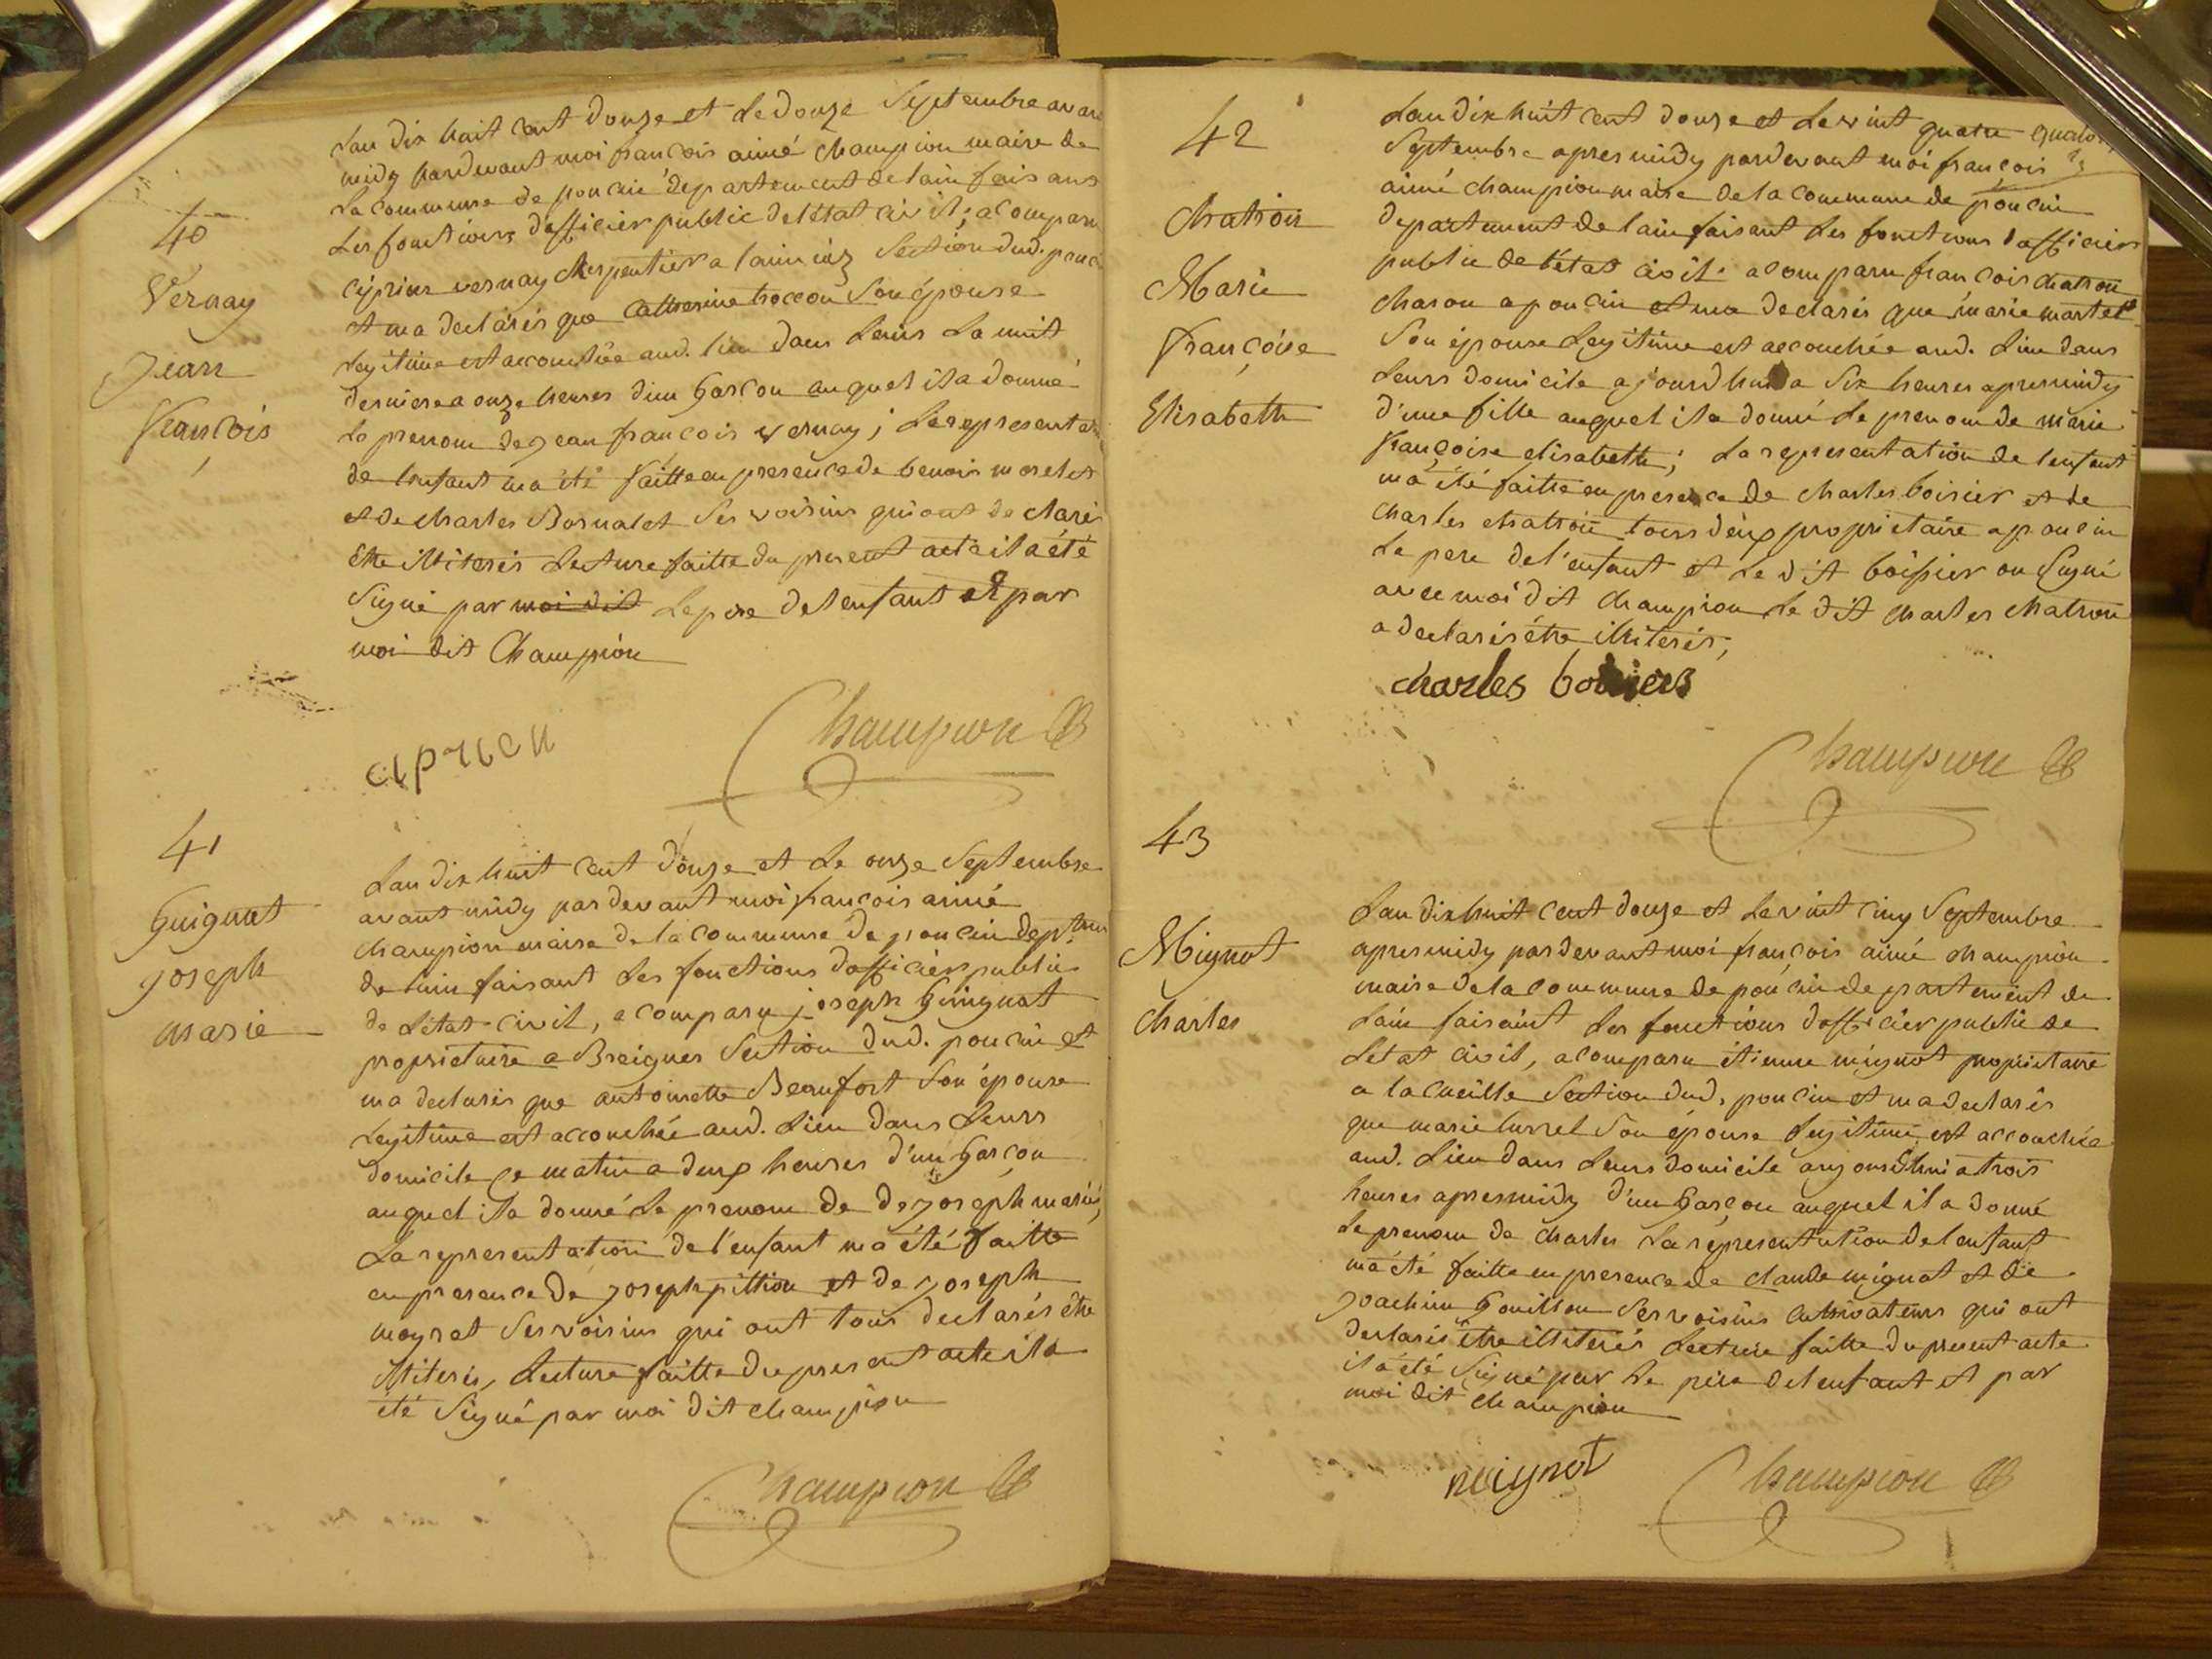 40
Vernay
Jean
François
Lan dix huit cent douze et Le douze Septembre avan
midy pardevant moi françois aimé Champion maire de
La commune de poncin departement de lain faisans
Les fonctions dofficier public de létat civil; a comparu
ciprien vernay charpentier a Section dud. ponc
et ma declarés que Catherine troccon Son épouse
Legitime est accouchée aud. lieu dans Leurs La nuit
derniere a onze heures d'un Garcon auquel il a donné
Le prenom de jean françois vernay; La representa
de lenfant ma été faitte en presence de benois morelet
et de charles Bornalet Ses voisins qui ont declarés
être illiterés Lecture faitte du present acte il a été
Signé par moi dit Le pere de lenfant et par
moi dit Champion
ciprien
Champion
41
Guignat
joseph
marie
Lan dix huit cent douze et Le onze Septembre
avant midy par devant moi francois aimé
champion maire de la commune de poncin
de lain faisant Les fonctions dofficier public
de Létat civil, a comparu joseph Guignat
proprietaire a Breignes Section dud. poncin et
ma declarés que antoinette Beaufort Son épouse
Legitime est accouchée aud. Lieu dans Leurs
domicile ce matin a deux heures d'un Garçon
auquel il a donné Le prenom de de joseph marie,
La representation de l'enfant ma été faitte
en presence de joseph pittion et de joseph
moyret Ses voisins qui ont tous declarés être
illiterés, Lecture faitte du present acte il a
été Signé par moi dit champion
Champion
42
Chatron
Marie
Françoise
Elisabeth
Lan dix huit cent douze et Le vint quatre
Septembre apres midy pardevant moi françois
aimé champion maire de la commune de poncin
departement de lain faisant Les fonctions dofficier
public de l'état civil a comparu francois chatron
charon a poncin et ma declarés que marie martel
Son épouse Legitime est accouchée aud. Lieu dans
Leurs domicile ajourdhui a Six heures apres midy
d'une fille auquel il a donné Le prenom de marie
françoise elisabeth; La representation de lenfent
ma été faitte en presence de charles boirier et de
charles chatron tous deux proprietaire a poncin
Le pere de l'enfant et Le dit boissier on Signé
avec moi dit champion Le dit charles chatron
a declarés être illiterés;
charles
Champion
43
Mignot
Charles
Lan dix huit cent douze et Le vint cinq Septembre
apres midy pardevant moi françois aimé champion
maire de la commune de poncin departement de
Lain faisaint Les fonctions dofficier public de
Létat civil, a comparu étienne mignot propriétaire
a la cueille Section dud. poncin et ma declarés
que marie Son épouse Legitime est accouchée
aud. Lieu dans Leurs domicile aujourdhui a trois
heures apres midy d'un Garçon auquel il a donné
Le prenom de charles La representation de lenfant
ma été faitte en presence de claude mignot et de
joachim Gouillon Ses voisins cultivateurs qui ont
declarés être illiterés Lecture faitte du present acte
il a été Signé par Le père de lenfant et par
moi dit champion
mignot
Champion